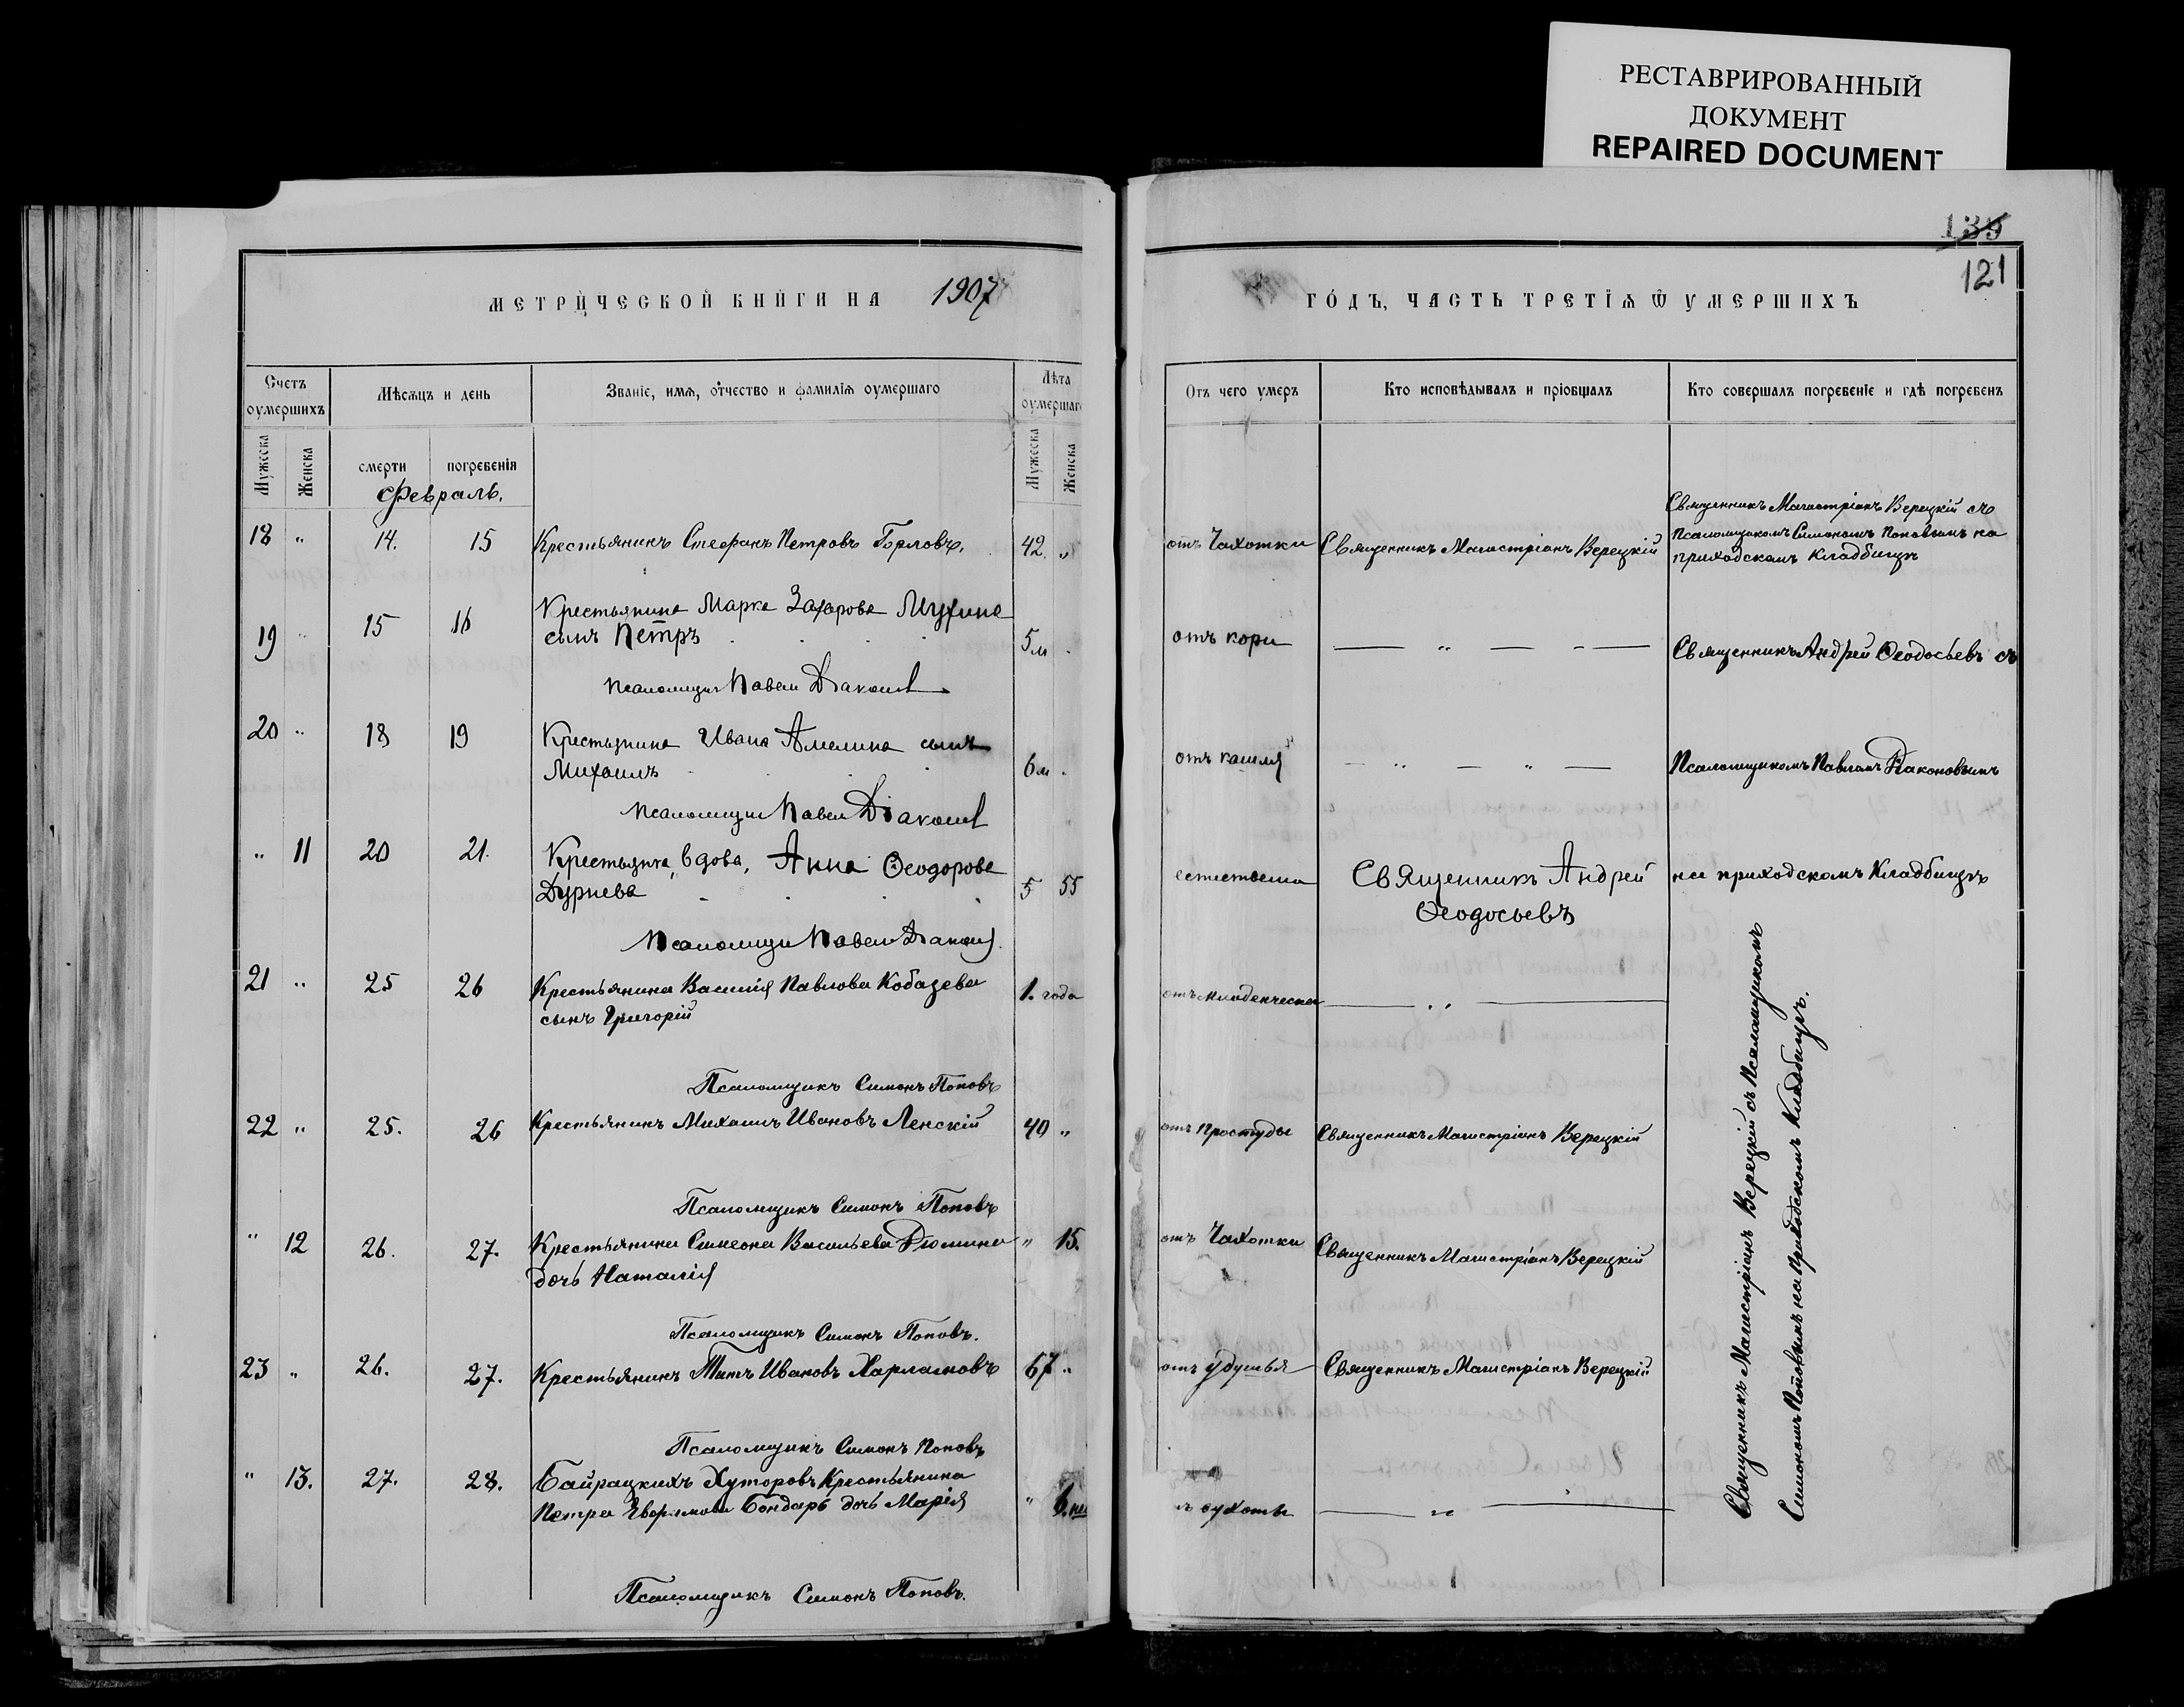 РЕСТАВРИРОВАННЫЙ
ДОКУМЕНТ
REPAIRED DOCUMENT
135
121
МЕТРИЧЕСКОЙ КНИГИ НА 1907
ГОДЪ, ЧАСТЬ ТРЕТІѦ Ѿ УМЕРШИХЪ
Счетъ оумершихъ
Мѣсѧцъ и день
Званіе, имѧ, отчество и фамиліѧ оумершаго
Лѣта оумершаго
Отъ чего умеръ
Кто исповѣдывалъ и пріобщалъ
Кто совершалъ погребеніе и гдѣ погребенъ
Мужеска
Женска
смерти
погребенія
Мужеска
Женска
Февраль.
18 " 14. 15 Крестьянинъ Стефанъ Петровъ Горловъ. 42. " отъ Чахотки Священникъ Магистріанъ Верецкій
Священникъ Магистріанъ Верецкій съ
Псаломщикомъ Симономъ Поповымъ на
приходскомъ кладбищѣ
19 " 15 16 Крестьянина Марка Захарова Мухина
сынъ Петръ 5 м отъ кори — " — - —
Священникъ Андрей Ѳеодосьевъ съ
Псаломщикъ Павелъ
20 " 18 19 Крестьянина Ивана Амелина сынъ
Михаилъ 6 м. отъ кашля — " — " —
Псаломщикомъ Павломъ Діаконовымъ
Псаломщикъ Павелъ
" 11 20 21. Крестьянка, вдова, Анна Ѳеодорова
Дурнева 5 55 естественно Священникъ Андрей
Ѳеодосьевъ
на приходскомъ Кладбищѣ
Псаломщикъ Павелъ
21 " 25 26 Крестьянина Василія Павлова Кобазева
сынъ Григорій 1. года отъ младенческой — " —
Псаломщикъ Симонъ Поповъ
22 " 25. 26 Крестьянинъ Михаилъ Ивановъ Ленскій 40 " отъ простуды Священникъ Магистріанъ Верецкій
Псаломщикъ Симонъ Поповъ
" 12 26. 27. Крестьянина Симеона Васильева Дюмина " 15. отъ Чахотки Священникъ Магистріанъ Верецкій
дочь Наталія
Псаломщикъ Симонъ Поповъ.
23 " 26. 27. Крестьянинъ Титъ Ивановъ Харламовъ 67 " отъ удушья Священникъ Магистріанъ Верецкій
Псаломщикъ Симонъ Поповъ
" 13. 27. 28. Байрацкихъ Хуторовъ Крестьянина
Петра Евфимова Бондарь дочь Марія " 6. сухоты — " —
Псаломщикъ Симонъ Поповъ.
Священникъ Магистріанъ Верецкій съ Псаломщикомъ
Симономъ Поповымъ на приходскомъ Кладбищѣ.